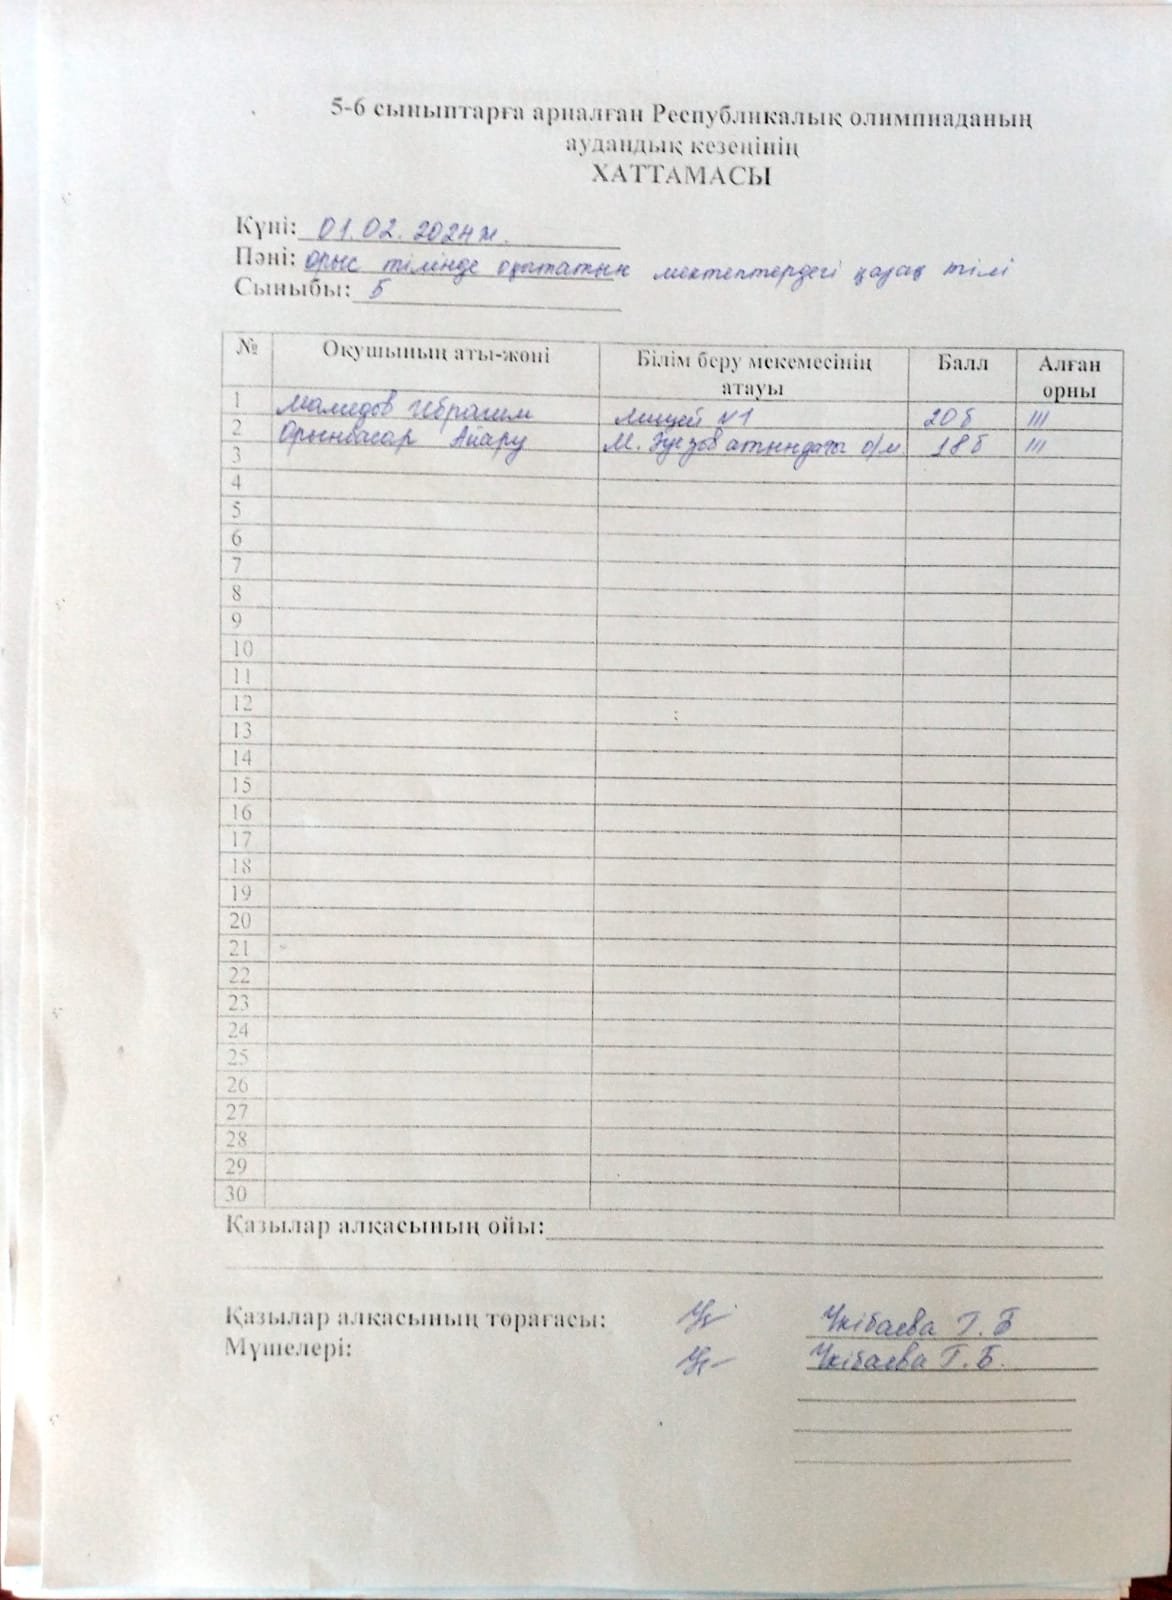 5-6 сыныптарға арналған Республикалық олимпиаданың
аудандық кезеңінің
ХАТТАМАСЫ
Күні: 01.02.2024ж.
Пәні: орыс тілінде оқытатын мектептердегі қазақ тілі
Сыныбы: 5
№ Оқушының аты-жөні Білім беру мекемесінің атауы Балл Алған орны
1 Мамедов Ибрагим Лицей №1 20б III
2 Орынбасар Айару М. Әуезов атындағы о/м. 18б III
3
4
5
6
7
8
9
10
11
12
13
14
15
16
17
18
19
20
21
22
23
24
25
26
27
28
29
30
Қазылар алқасының ойы:
Қазылар алқасының төрағасы: Үкібаева Г. Б
Мүшелері: Үкібаева Г. Б.